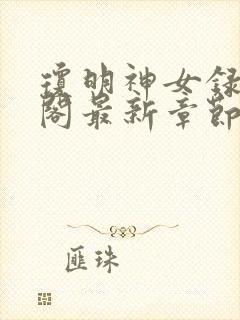 瓊明神女録
閣最新章節
匪珠